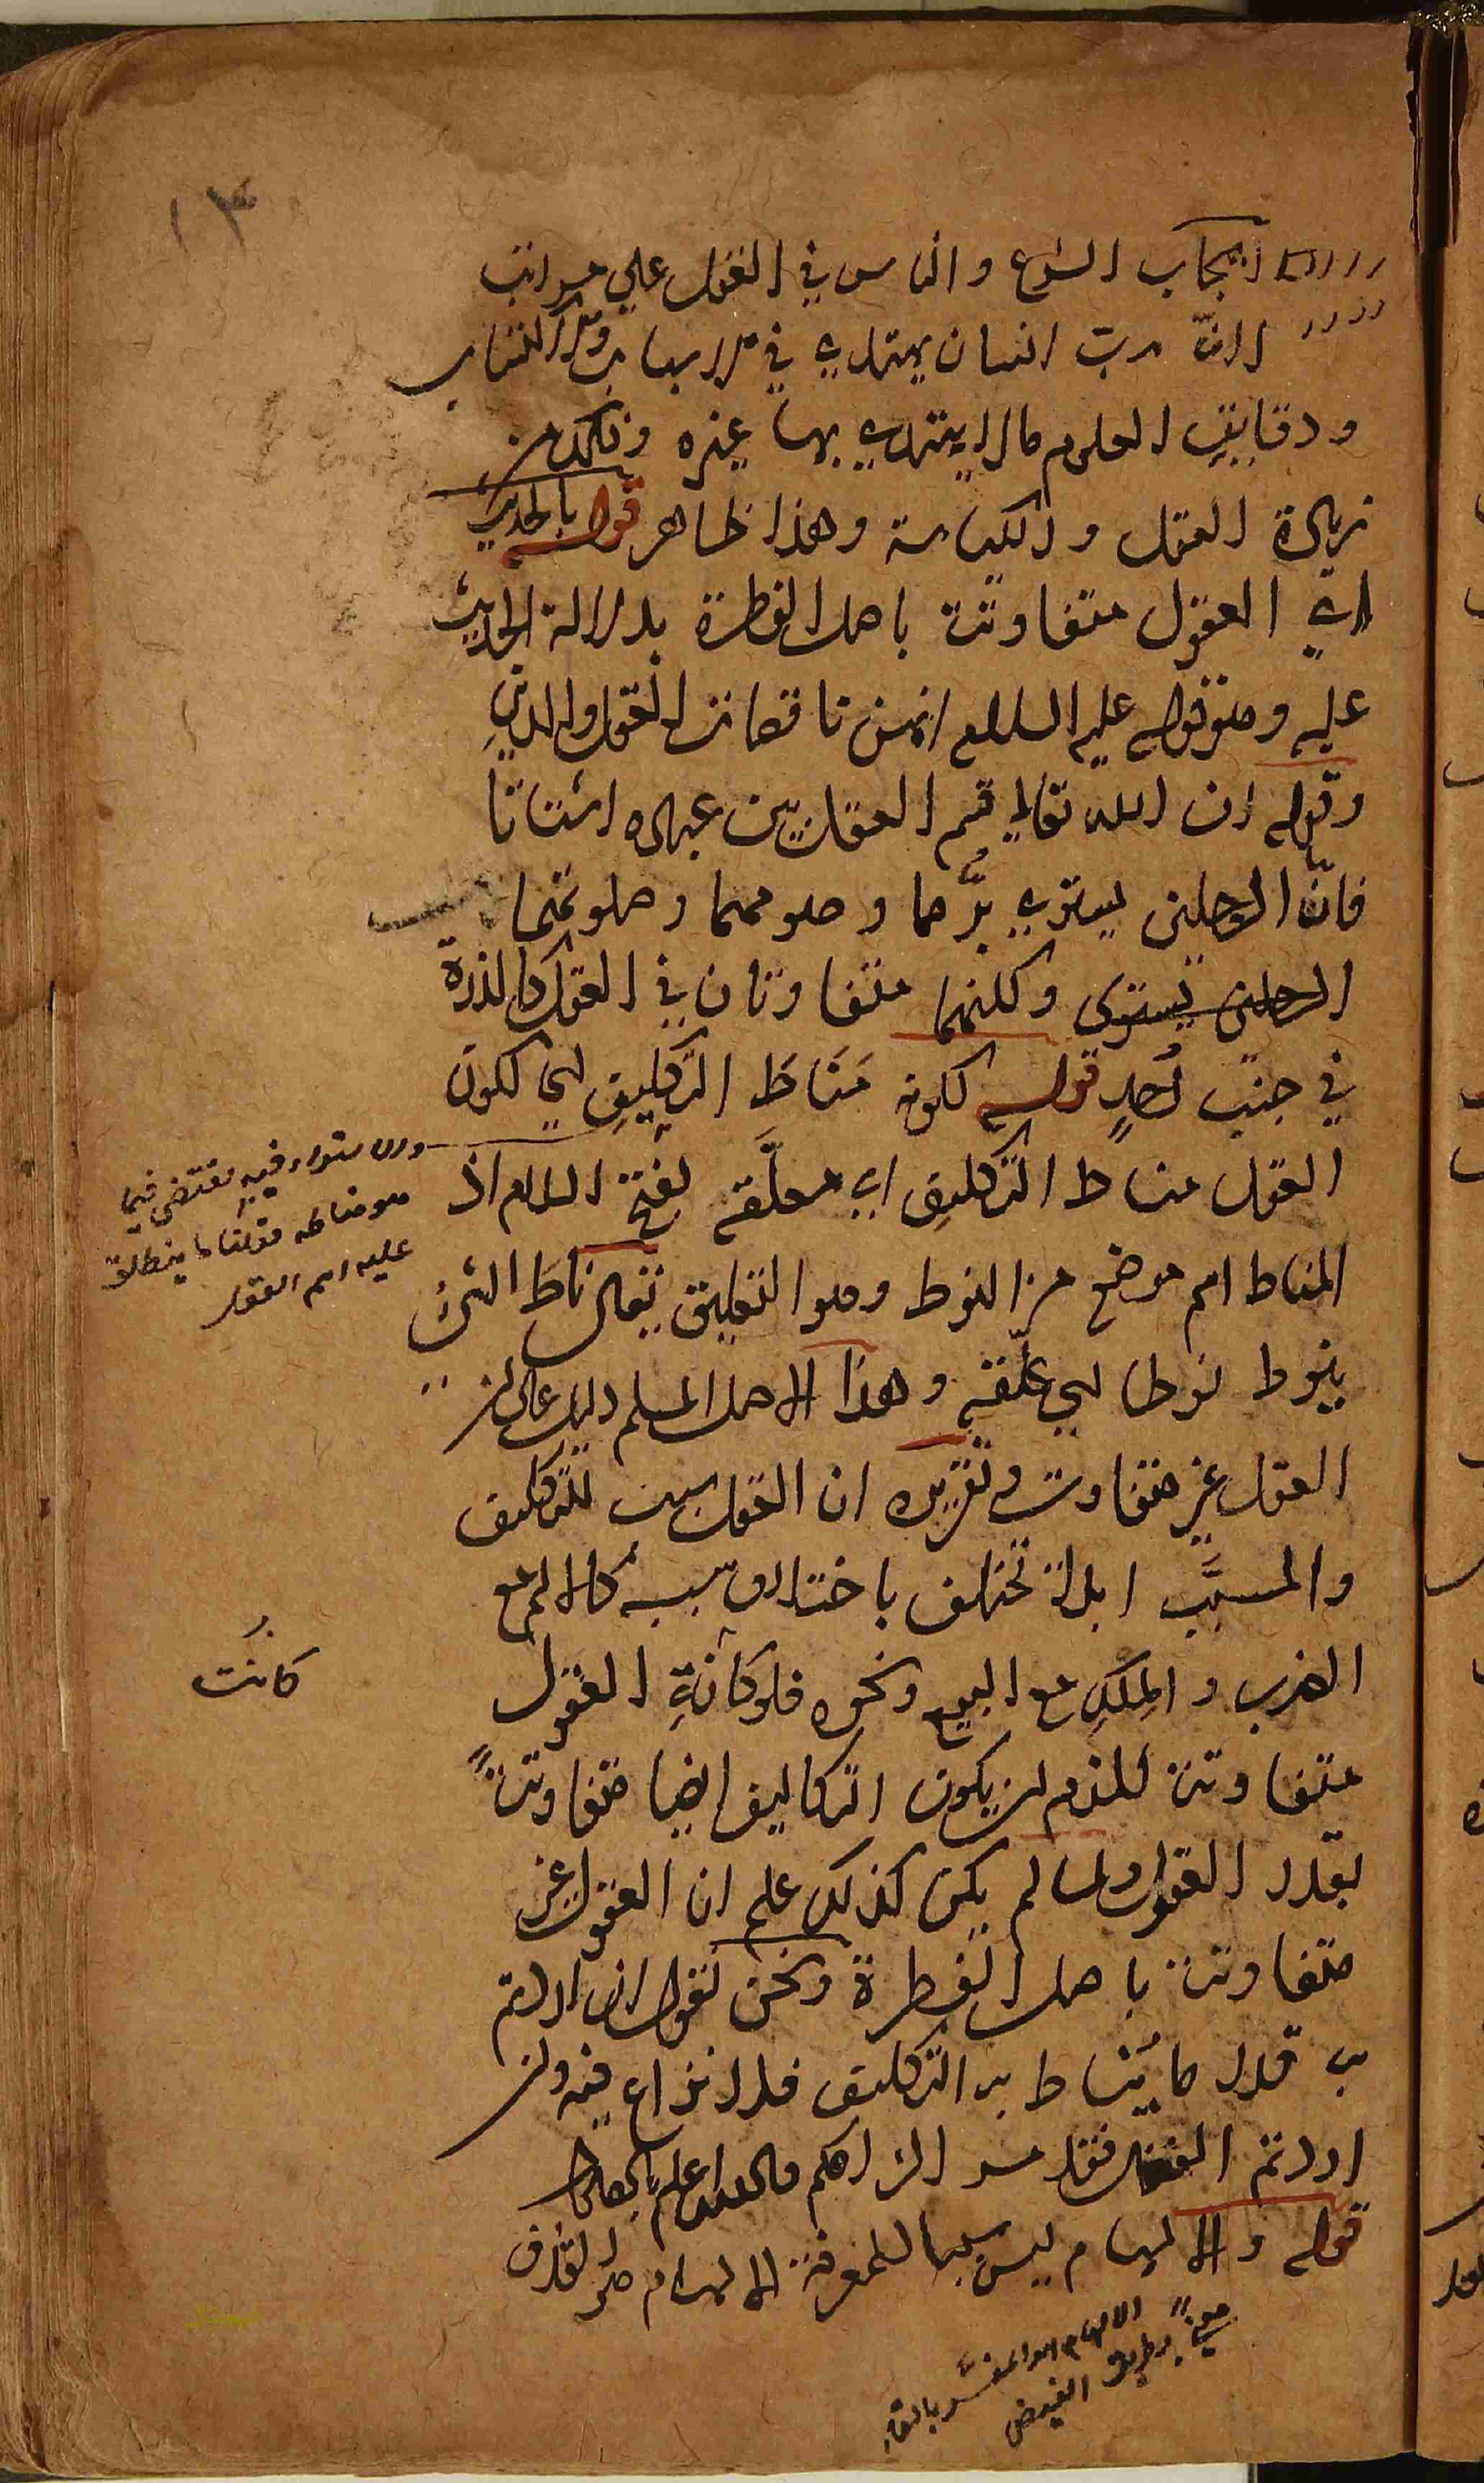 ١٣
ايجاب الشرع والناس في العقل على مراتب
الا ترى رب انسان يهتدي في
ودقايق العلوم مالا يهتدي بها غيره وذلك من
زيادة العقل والكياسة وهذا ظاهر قوله بالحديث
اي العقول متفاوتة باصل الفطرة بدلالة الحديث
عليه وهو قوله عليه السلام انهن ناقصات العقل والدين
وقوله ان الله تعالى قسم العقل بين عباده اشتاتا
فانّ الرجلين يستوي برّهما وصومهما وصلوتهما
الرجلين يستوى وكلنهما متفاوتان في العقل كالذرة
في جنب أحدٍ قوله لكونه مَنَاطَ التكليفِ اي لكون
العقل مناط التكليف اي معلَّقه بفتح اللام اذ
المناط اسم موضع من النوط وهو التعليق يقال ناط الشئ
ينوط نوطا اي علّقه وهذا الاصل المسلم دليل على ان
العقل غير متفاوت وتقريره ان العقل سبب للتكليف
والمسبَّب ابدا تختلف باختلاف سببه كالالم مع
الضرب والمِلكِ مع البيع ونحوه فلو كانةِ العقول
متفاوتة للزم ان يكون التكاليف ايضا متفاوتةً
بقدر العقول ولما لم يكن كذلك علم ان العقول غير
متفاوتة باصل الفطرة ونحن نقول ان اردتم
ب قدر ما يُناط به التكليف فلا نزاع فيه وان
اردتم الفضل فقد مر الزامكم والله اعلم بالصواب
قوله والالهام ليس سببا للمعرفة الالهام هو القذف
والاستواء فيه يقتضي فيما
هو مناطه قولنا ما ينطلق
عليه اسم العقل
كانت
الالهام هو المفسّر بالقاء
معنىً بطريق الفيض